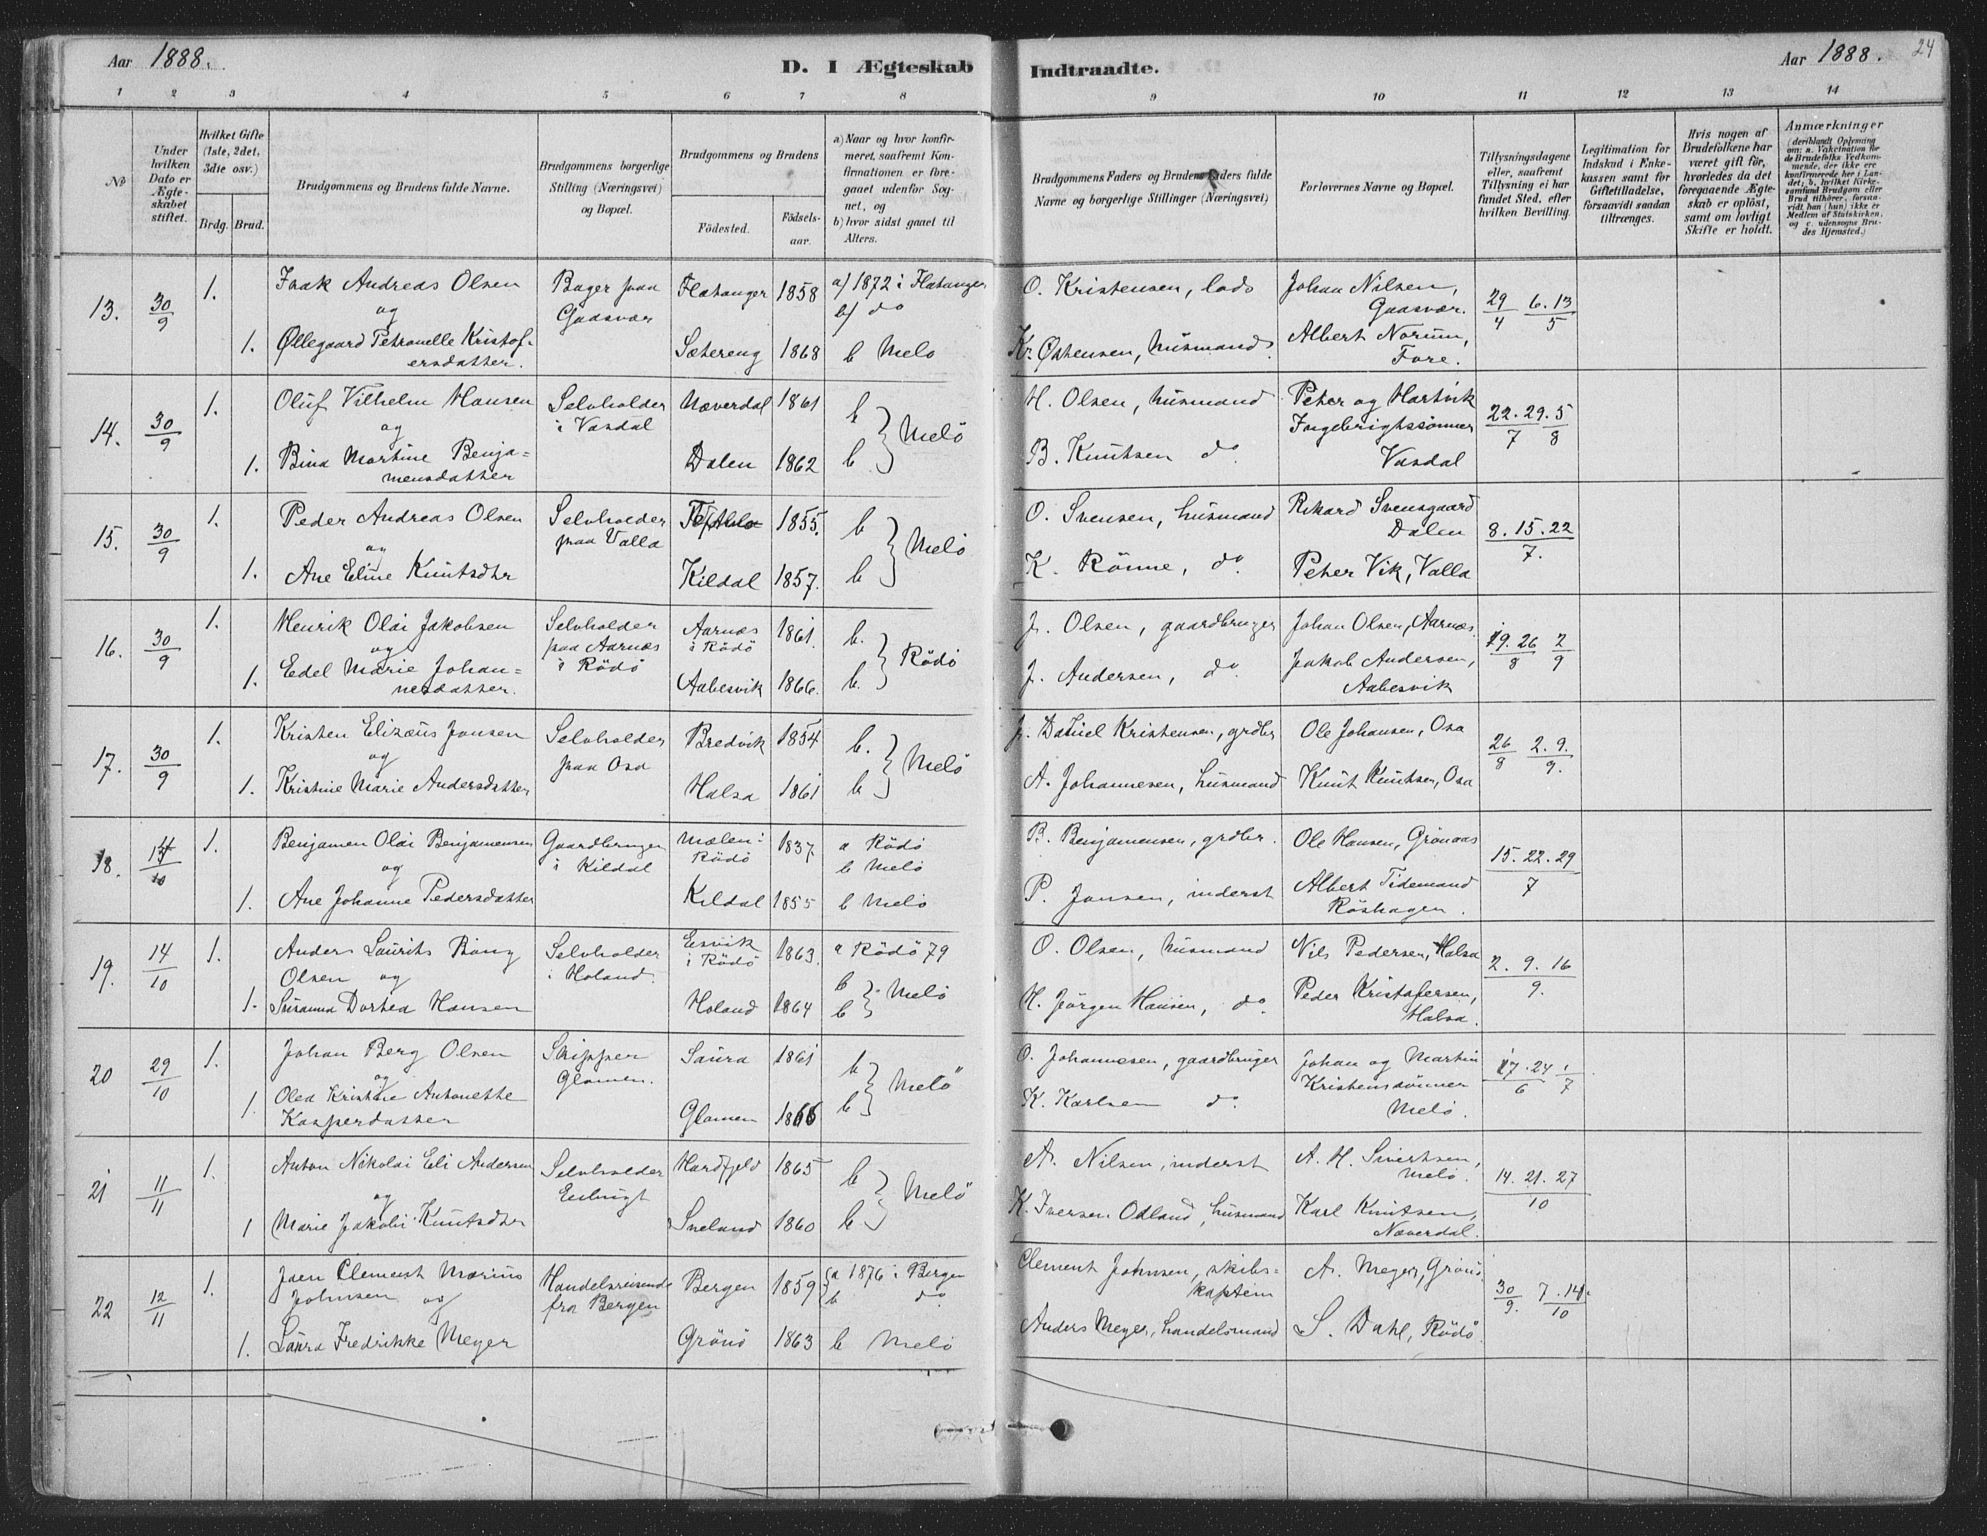 Aar 1888. D. I Ægteskab Indtraadte. Aar 1888. 24
1 2 3 4 5 6 7 8 9 10 11 12 13 14
No
Under hvilken Dato er Ægteskabet stiftet.
Hvilket Gifte (1ste, 2det, 3dte osv.)
Brdg. Brud.
Brudgommens og Brudens fulde Navne.
Brudgommens borgerlige Stilling (Næringsvei) og Bopæl.
Brudgommens og Brudens
Fødested.
Fødsels-aar.
a) Naar og hvor konfirmeret, saafremt Konfirmationen er foregaaet udenfor Sognet, og
b) hvor sidst gaaet til Alters.
Brudgommens Faders og Brudens Faders fulde Navne og borgerlige Stillinger (Næringsvei)
Forlovernes Navne og Bopæl.
Tillysningsdagene eller, saafremt Tillysning ei har fundet Sted, efter hvilken Bevilling.
Legitimation for Indskud i Enkekassen samt for Giftetilladelse, forsaavidt saadan tiltrænges.
Hvis nogen af Brudefolkene har været gift før, hvorledes da det foregaaende Ægteskab er opløst, samt om lovligt Skifte er holdt.
Anmærkninger
(deriblandt Oplysning om: a. Vakcination for de Brudefolks Vedkommende, der ikke ere konfirmerede her i Landet; b. hvilket Kirkesamfund Brudgom eller Brud tilhører, forsaavidt han (hun) ikke er Medlem af Statskirken, og c. udensogns Brudes Hjemsted.)
13. 30/9 1. Isak Andreas Olsen Bager paa Flatanger 1858 a) 1872 i Flatanger O. Kristensen, lods Johan Nilsen, 29/4 6.13/5
og Gaasvær b) do Gaasvær.
1. Øllegaard Petronelle Kristof- Sætereng 1868 b Melø Kr. Østensen, husmand. Albert Norum,
ersdatter. Fore.
14. 30/9 1. Oluf Vilhelm Hansen Selvholder Næverdal 1861 b H. Olsen, husmand Peter og Hartvik 22.29/7 5/8
og i Vasdal Melö Ingebrigtssønner
1. Bina Martine Benja- Dalen 1862 b. B. Knutsen do. Vasdal
mensdatter
15. 30/9 1. Peder Andreas Olsen Selvholder 1855. b O. Svensen, husmand Rikard Svensgaard 8.15.22/7.
og paa Valla Melö Dalen
1. Ane Eline Knutsdtr Kildal 1857. b K. Rönne, do. Peter Vik, Valla
16. 30/9 1. Henrik Olai Jakobsen Selvholder Aarnæs 1861. b. J. Olsen, gaardbruger Johan Olsen, Aarnæs. 19.26/8 2/9
og paa Aarnæs i Rödö Rödö
1. Edel Marie Johan- i Rödö Aabesvik 1866. b. J. Andersen, do. Jakob Andersen,
nesdatter. Aabesvik
17. 30/9 1. Kristen Elizæus Jensen Selvholder Bredvik 1854 b. J. Daniel Kristensen, grdbr Ole Johansen, Osa 26/8 2.9./9.
og paa Osa Melö
1. Kristine Marie Andersdatter Halsa 1861 b A. Johannesen, husmand Knut Knutsen, Osa
18. 14/10 1. Benjamen Olai Benjamensen Gaardbruger Mælen i 1837. a Rödö B. Benjamensen, grdbr. Ole Hansen, Grönaas 15.22.29/7
og i Kildal Rödö b Melö
1. Ane Johanne Pedersdatter Kildal 1855 b Melö P. Jensen, inderst Albert Tidemand
Röshagen.
19. 14/10 1. Anders Laurits Bing Selvholder Esvik 1863. a Rödö 79 O. Olsen, husmand Nils Pedersen, Halsa 2.9.16/9.
Olsen og i Holand. i Rödö b Melö
1. Susanna Dortea Hansen Holand 1864 b H. Jørgen Hansen, do. Peder Kristofersen,
Halsa.
20 29/10 1. Johan Berg Olsen Skipper Saura 1861 b O. Johannesen, gaardbruger Johan og Martin 17.24/6 1/7
og Glomen. Melö Kristensönner
1. Olea Kristine Antonette Glomen 1866 b K. Karlsen do. Melö.
Kaspersdatter
21 11/11 1. Anton Nikolai Eli Andersen Selvholder Hardfjeld 1865 b A. Nilsen, inderst A. H. Sivertsen, 14.21.27/10
og Enbugt Melö Melö.
1 Marie Jakobi Knutsdtr Sneland 1860 b K. Iversen Odland, husmand Karl Knutsen,
Næverdal.
22 12/11 1. Jaen Clement Marius Handelsreisende Bergen 1859 a 1876 i Bergen Clement Johnsen, skibs- A. Meyer, Grönö. 30/9. 7.14/10
Johnsen og fra Bergen b do. kaptein
1. Laura Fredrikke Meyer Grönö 1863 b Melö Anders Meyer, handelsmand S. Dahl, Rödö.